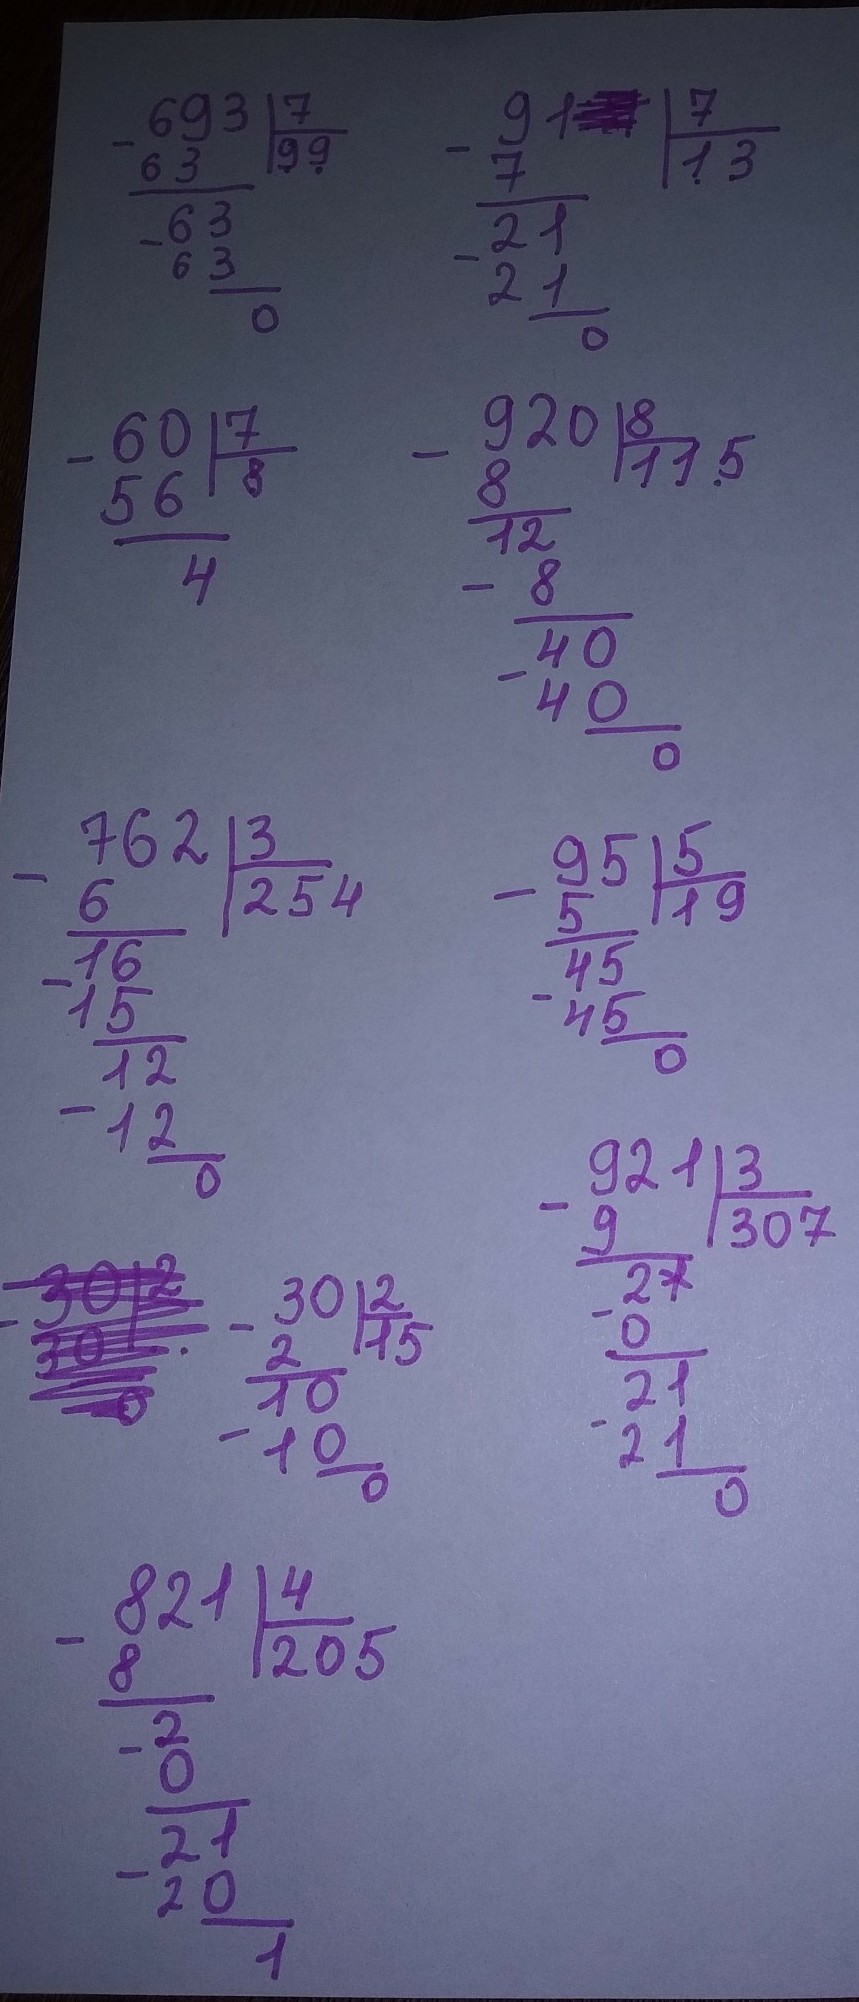 -693 7
63 99
-63
63
0
-91 7
7 13
-21
21
0
-60 7
56 8
4
-920 8
8 115
12
-8
40
-40
0
-762 3
6 254
-16
15
12
-12
0
-95 5
5 19
45
-45
0
-921 3
9 307
-2
0
21
-21
0
-30 2
30
0
-30 2
2 15
10
-10
0
-821 4
8 205
-2
0
21
-20
1